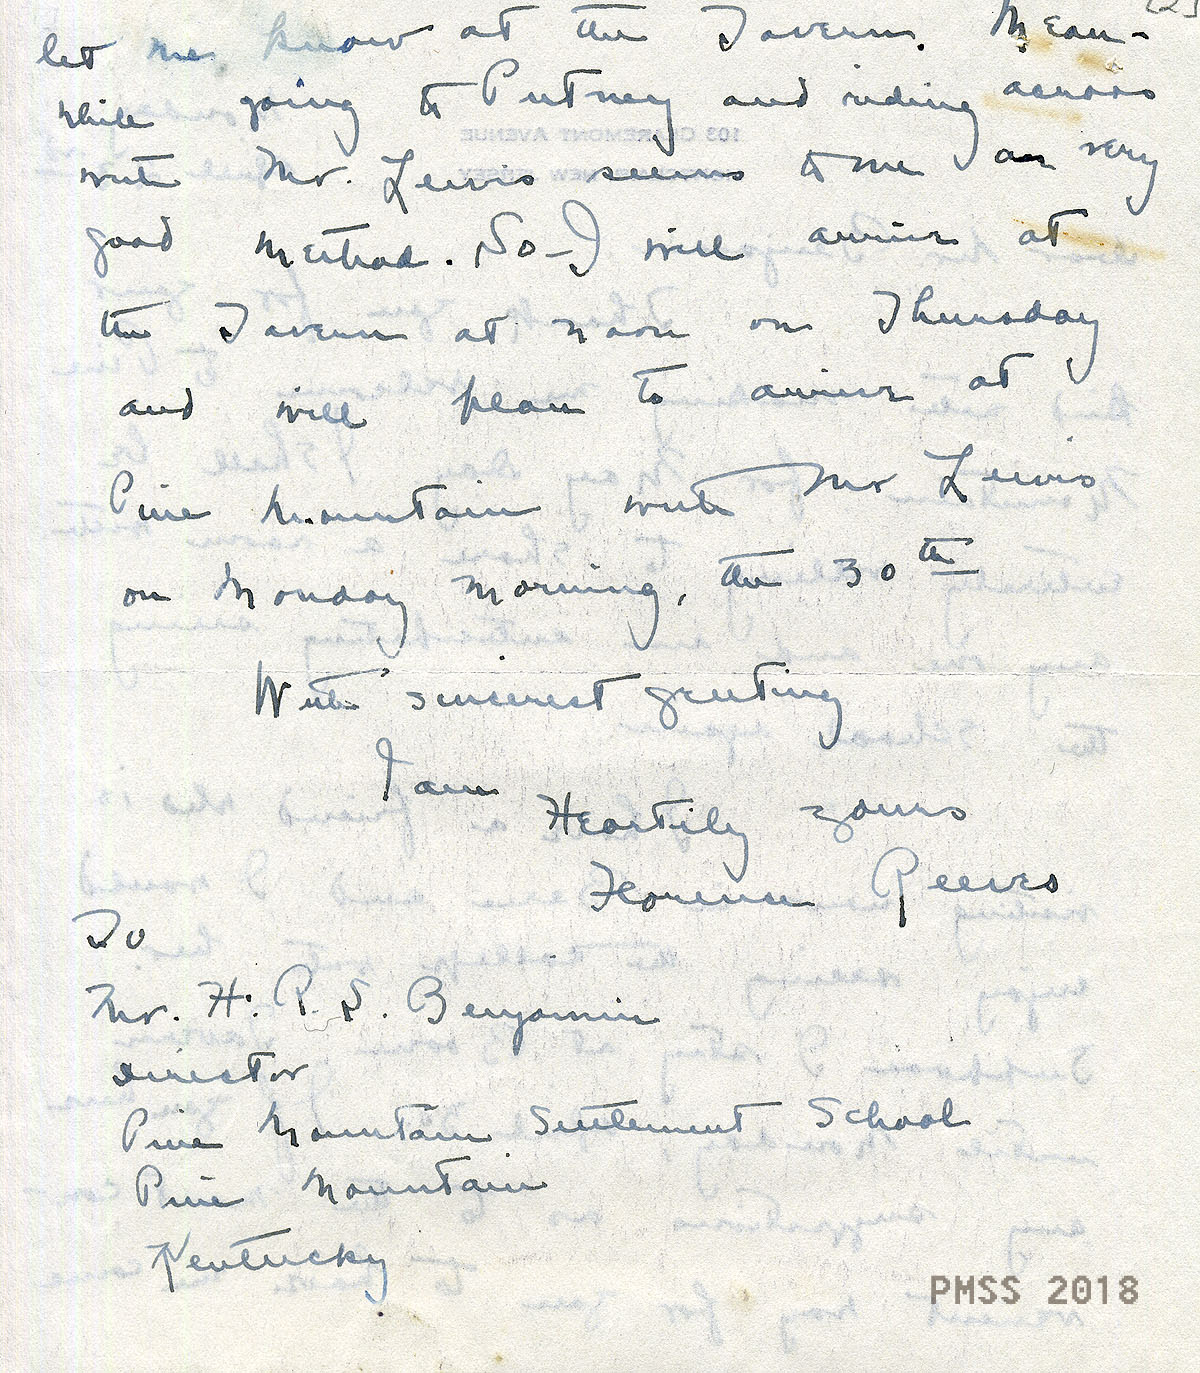 [2]
let me know at the Tavern. Mean-
while going to Putney and riding across
with Mr. Lewis seems to me a very
good method. So - I will arrive at
the Tavern at noon on Thursday
and will plan to arrive at
Pine Mountain with Mr Lewis
on Monday morning, the 30th
With sincerest greeting
I am
Heartily yours
Florence Reeves
To
Mr. H. R. S. Benjamin
Director
Pine Mountain Settlement School
Pine Mountain
Kentucky.
PMSS 2018